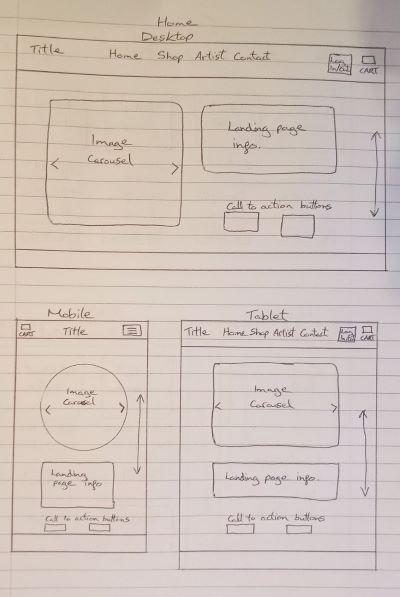 Home
Desktop
Title Home Shop Artist Contact Log In/Out CART
Image
Carousel
Landing page
info.
Call to action buttons
Mobile
CART Title
Image
Carousel
Landing
page info
Call to action buttons
Tablet
Title Home Shop Artist Contact Log In/Out CART
Image
Carousel
Landing page info.
Call to action buttons